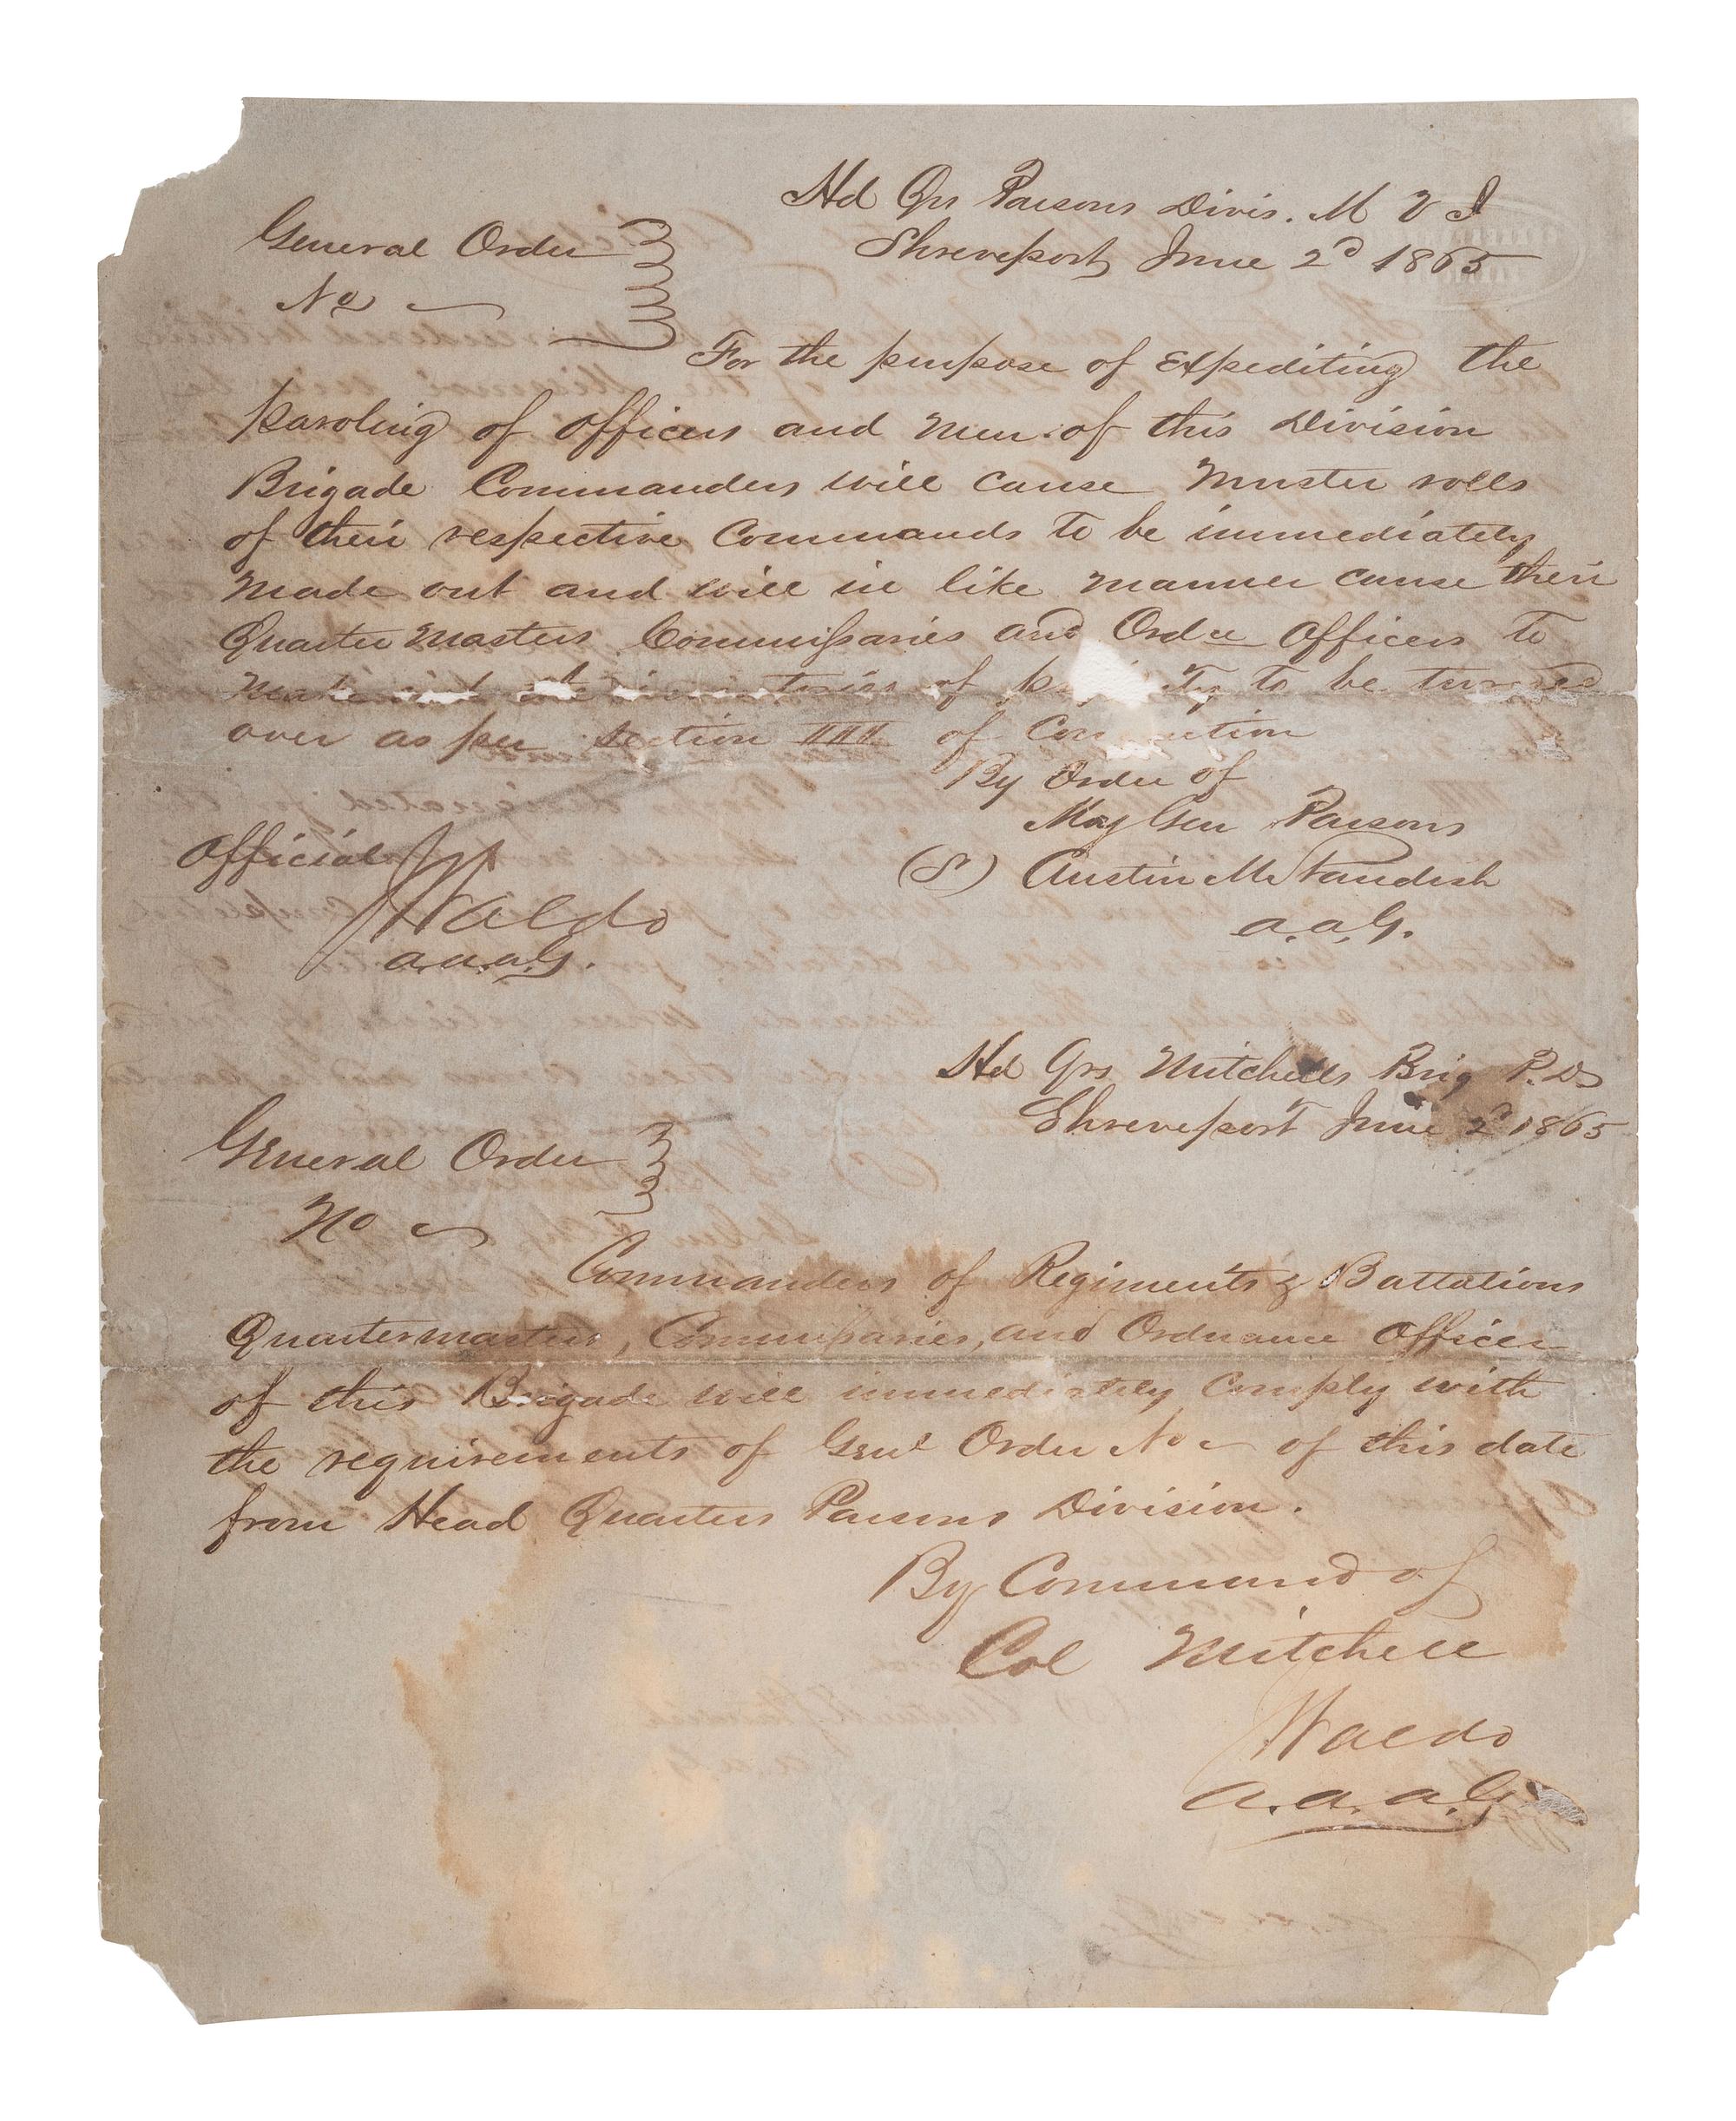 Hd Qrs Parsons Divis. M V I
Shreveport June 2d 1865
General Order
No
For the purpose of Expediting the
paroling of officers and Men of this Division
Brigade Commanders will cause Muster rolls
of their respective Commands to be immediately
Made out and will in like manner cause their
Quarter Masters Commissaries and Ordce Officers to
Make out inventories of to be turned
over as per Section IIII of
By Order of
Maj Gen Parsons
(S) Austin M Standish
a.a.G.
Official
Waldo
a.a.a.G.
Hd Qrs Mitchells Brig P.D
Shreveport June 2d 1865
General Order
No
Commanders of Regiments & Battalions
Quartermasters, Commissaries, and Ordnance Officer
of this Brigade will immediately Comply with
the requirements of Genl Order No of this date
from Head Quarters Parsons Division.
By Command of
Col Mitchell
Waldo
a.a.a.G